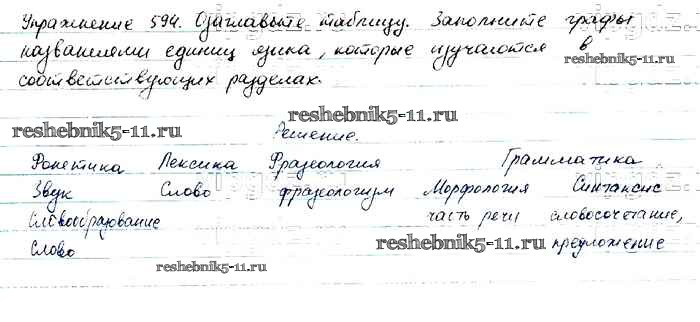 Упражнение 594. Озаглавьте таблицу. Заполните графы
названиями единиц языка, которые изучаются в
соответствующих разделах.
reshebnik5-11.ru
reshebnik5-11.ru
reshebnik5-11.ru
Решение.
Фонетика Лексика Фразеология Грамматика
Звук Слово фразеологизм Морфология Синтаксис
Словообразование часть речи словосочетание,
Слово reshebnik5-11.ru предложение
reshebnik5-11.ru